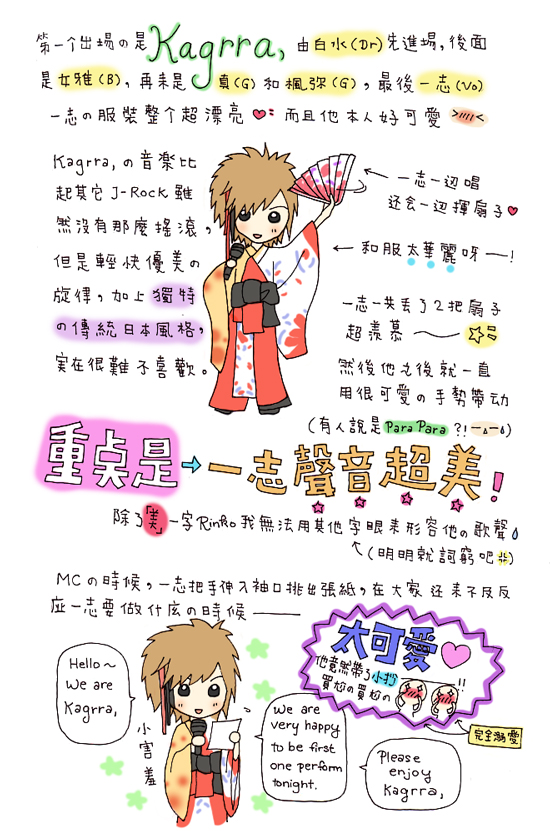 第一个出場の是Kagrra,由白水(Dr)先進場,後面
是女雅(B),再来是真(G)和楓弥(G),最後一志(Vo)
一志の服裝整个超漂亮♥而且他本人好可愛
Kagrra,の音楽比
起其它J-Rock雖
然沒有那麼搖滾,
但是輕快優美の
旋律,加上獨特
の傳統日本風格,
実在很難不喜歡。
←一志一边唱
还会一边揮扇子♥
←和服太華麗呀一!
一志一共丟了2把扇子
超羨慕
然後他之後就一直
用很可愛の手勢帶动
(有人說是ParaPara?!)
重点是→一志聲音超美!
除了「美」一字RinRo我無法用其他字眼来形容他の歌聲
(明明就詞窮吧)
MCの時候,一志把手伸入袖口挑出張紙,在大家还未反
应一志要做什庅の時候
太可愛
他竟然帶了小抄!!
完全溺愛
Hello~
We are
Kagrra,
小害羞
We are
very happy
to be first
one perform
tonight.
Please
enjoy
Kagrra,